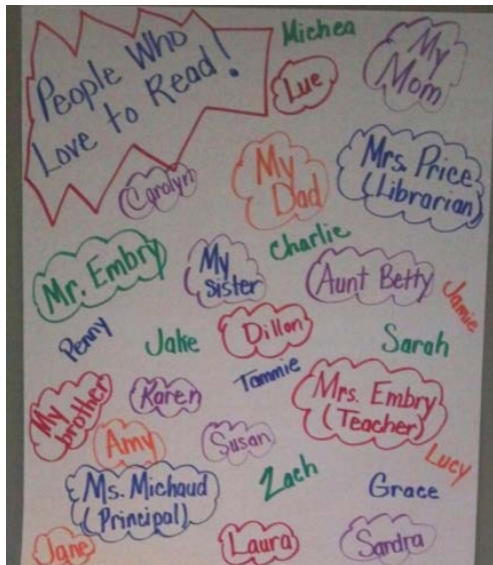 People Who
Love to Read!
Michea
Lue
My
Mom
Carolyn
My
Dad
Mrs. Price
(Librarian)
Mr. Embry
My
sister
Charlie
Aunt Betty
Jamie
Penny
Jake
Dillon
Sarah
My
brother
Karen
Tammie
Mrs. Embry
(Teacher)
Amy
Susan
Lucy
Ms. Michaud
(Principal)
Zach
Grace
Jane
Laura
Sandra